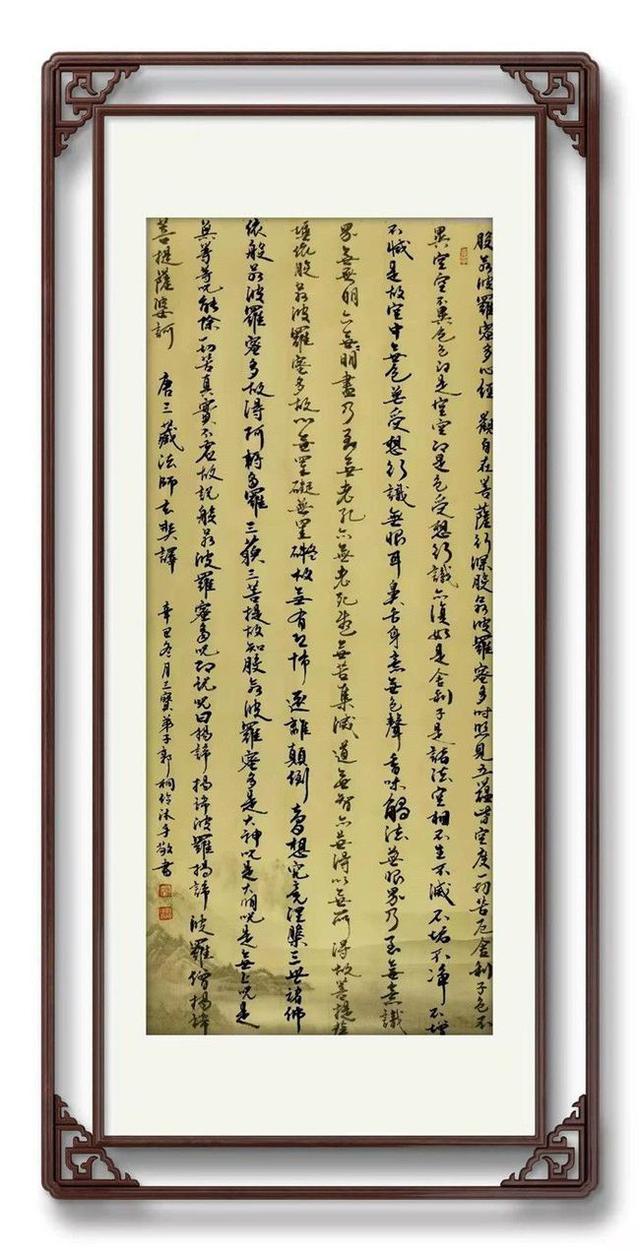 般若波羅蜜多心經 觀自在菩薩行深般若波羅蜜多時照見五蘊皆空度一切苦厄舍利子色不
異空空不異色色即是空空即是色受想行識亦復如是舍利子是諸法空相不生不滅不垢不净不增
不減是故空中無色無受想行識無眼耳鼻舌身意無色聲香味觸法無眼界乃至無意識
界無無明亦無無明盡乃至無老死亦無老死盡無苦集滅道無智亦無得以無所得故菩提薩
埵依般若波羅蜜多故心無罣礙無罣礙故無有恐怖遠離顛倒夢想究竟涅槃三世諸佛
依般若波羅蜜多故得阿耨多羅三藐三菩提故知般若波羅蜜多是大神咒是大明咒是無上咒是
無等等咒能除一切苦真實不虛故說般若波羅蜜多咒即說咒曰揭諦揭諦波羅揭諦波羅僧揭諦
菩提薩婆訶 唐三藏法師玄奘譯 辛丑冬月三寶弟子郭桐伶沐手敬書